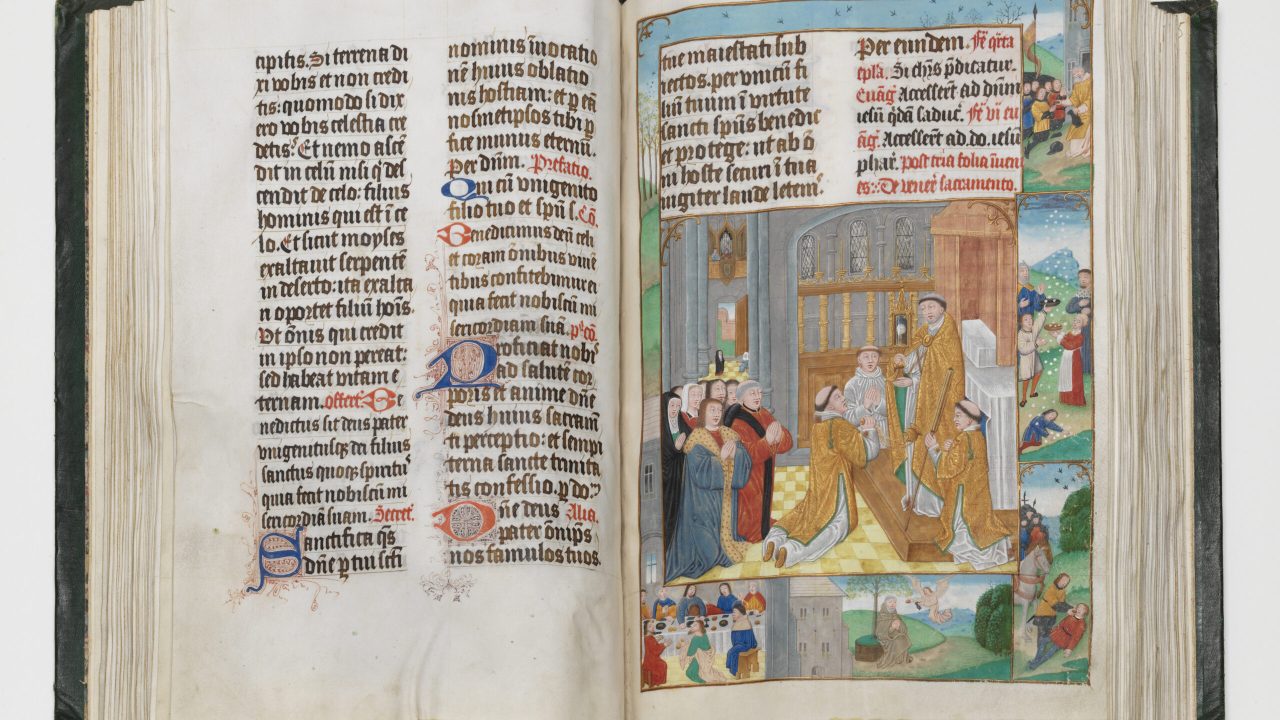 cipitis. Si terrena di
xi vobis et non credi
tis: quomodo si dix
ero vobis celestia cre
detis? Et nemo ascē
dit in celū nisi q̇ des
cendit de celo: filius
hominis qui est ī ce
lo. Et sicut moyses
exaltavit serpentē
in deserto: ita exalta
ri oportet filiū hoīs.
Vt ōnis qui credit
in ipso non pereat:
sed habeat vitam e
ternam. offert. Be
nedictus sit deus pater
unigenitusq̄ dei filius
sanctus quoq̄ spiritus
quia fecit nobiscū mi
sericordiā suam. Secret.
Sanctifica q̄s
dn̄e p tui scti
nominis īvocatio
nē huius oblatio
nis hostiam: et p eā
nosmetipsos tibi p
fice munus eternū.
Per dn̄m. Prefatio.
Qui cū vnigenito
filio tuo et spū s. Cō.
Benedicimus deū celi
et coram ōnibus vivē
tibus confitebimur ei
quia fecit nobiscū mi
sericordiam suā. p̄ cō.
Proficiat nobis
ad salutē cor
poris et anime dn̄e
deus huius sacram̄
ti perceptio: et sempi
terna sancte trinita
tis confessio. p do.
Dn̄e deus Alia.
pater ōnip̄s
nos famulos tuos.
tue maiestati sub
iectos. per vnicū fi
liū tuum ī virtute
sancti spūs benedic
et protege: ut ab ō
ni hoste securi ī tua
iugiter laude letem̄.
Per eundem. Fē q̄rta
epla. Si chūs p̄dicatur.
Euāg̅ Accesserūt ad dn̄m
iesū q̄dā saduc. Fē vi eu
āg̅. Accesserūt ad. do. iesū
phar. Post tria folia īuen
es: De vener̄ sacramento.